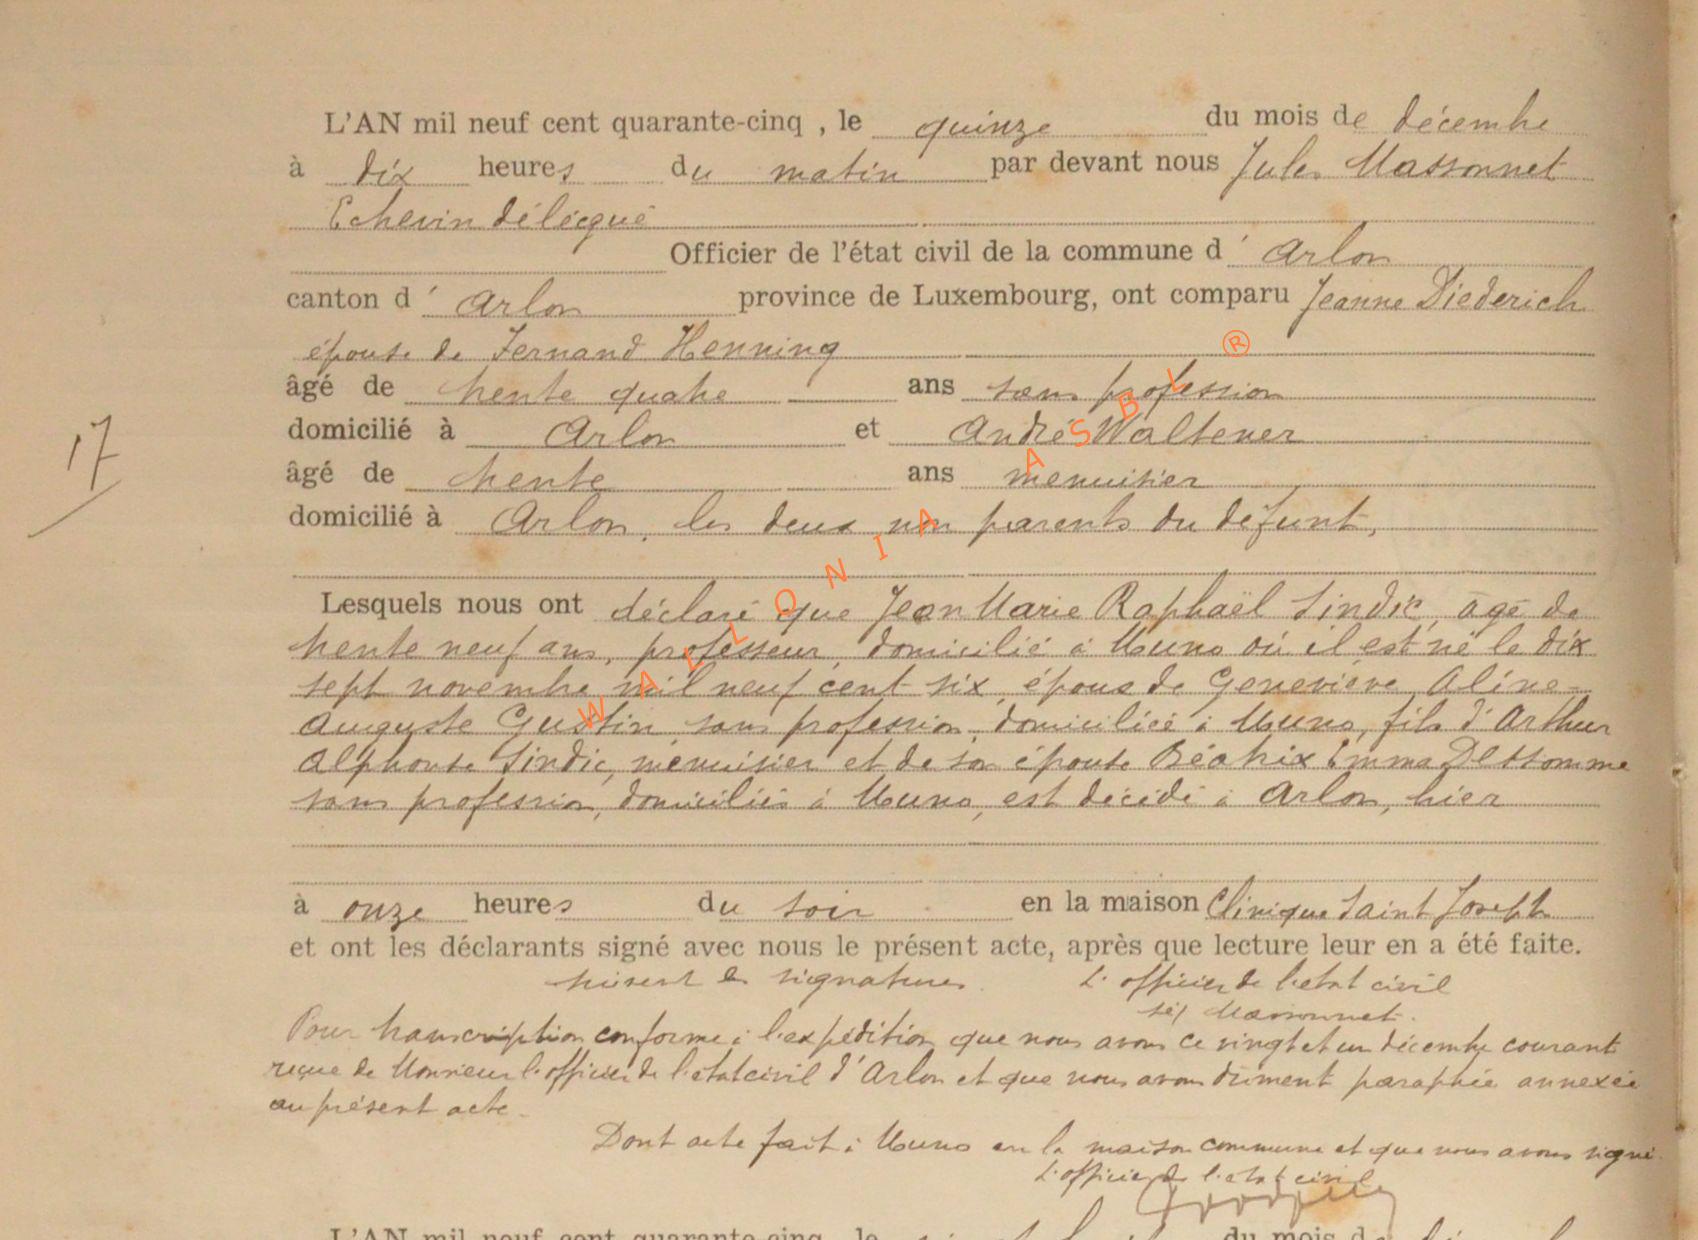 L'AN mil neuf cent quarante-cinq , le quinze du mois de décembre
à dix heures du matin par devant nous Jules Massonnet
Echevin délégué
Officier de l'état civil de la commune d' Arlon
canton d' Arlon province de Luxembourg, ont comparu Jeanne Diederich
épouse de Fernand Henning
âgé de trente quatre ans sans profession
domicilié à Arlon et André Waltener
âgé de trente ans menuisier
domicilié à Arlon, les deux non parents du défunt,
17
Lesquels nous ont déclaré que Jean Marie Raphaël Sindic, âgé de
trente neuf ans, professeur, domicilié à Muno où il est né le dix
sept novembre mil neuf cent six, époux de Geneviève Aline
Auguste Gustin, sans profession, domiciliée à Muno, fils d'Arthur
Alphonse Sindic, menuisier et de son épouse Béatrix Emma Dessomme
sans profession, domiciliés à Muno, est décédé à Arlon, hier
à onze heures du soir en la maison Clinique Saint Joseph
et ont les déclarants signé avec nous le présent acte, après que lecture leur en a été faite.
suivent les signatures. L'officier de l'état civil
sé) Massonnet.
Pour transcription conforme à l'expédition que nous avons ce vingt et un décembre courant
reçue de Monsieur l'officier de l'état civil d'Arlon et que nous avons dûment paraphée annexée
au présent acte.
Dont acte fait à Muno en la maison commune et que nous avons signé.
L'officier de l'état civil
L'AN mil neuf cent quarante-cinq, le du mois de
WALLONIA ASBL ®